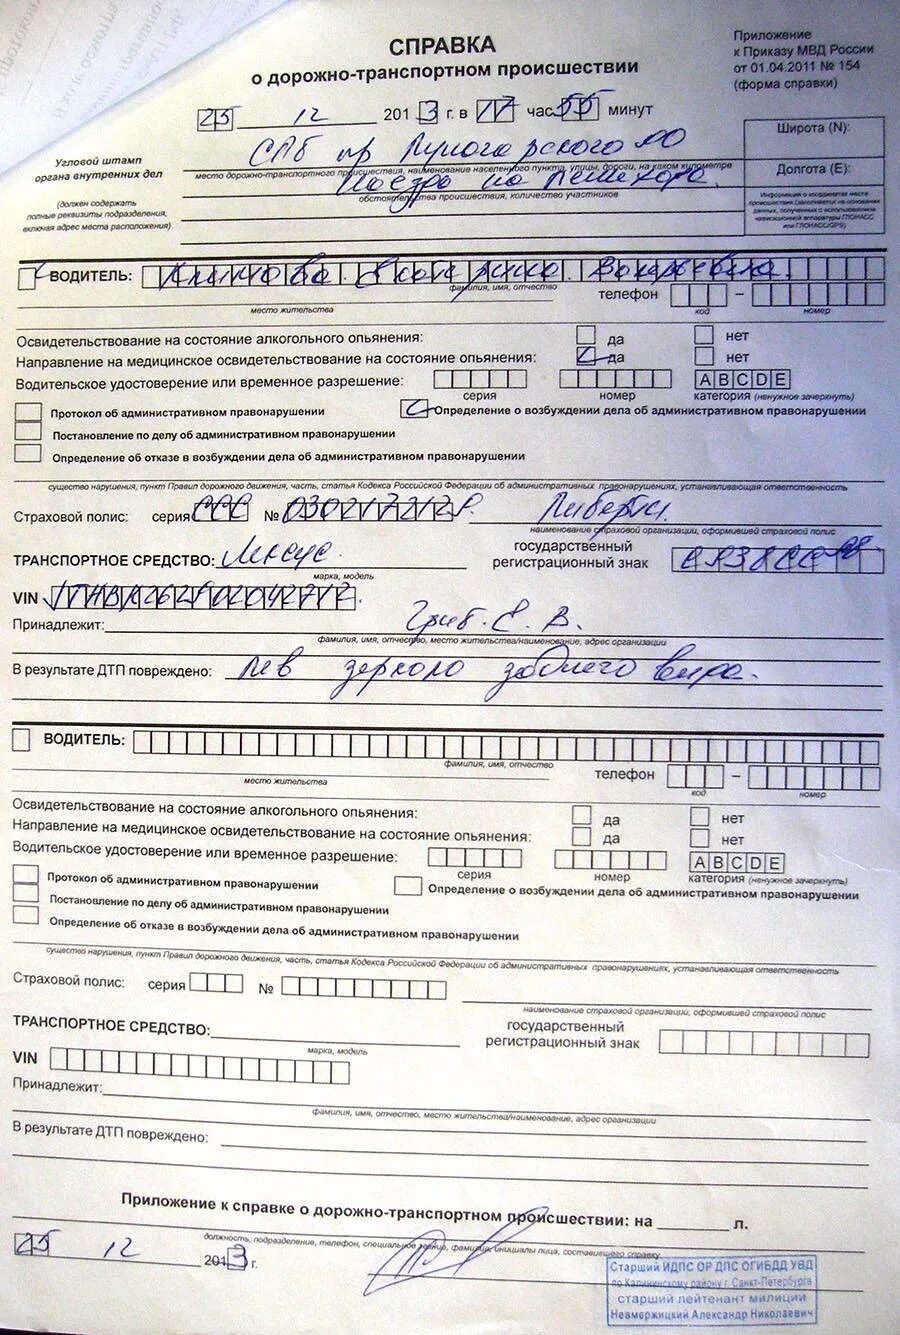 СПРАВКА
о дорожно-транспортном происшествии
Приложение
к Приказу МВД России
от 01.04.2011 № 154
(форма справки)
25 12 2013 г. в 17 час 55 минут
Широта (N):
СПб пр Луначарского
Угловой штамп
органа внутренних дел
место дорожно-транспортного происшествия, наименование населенного пункта, улицы, дороги, на каком километре
Долгота (E):
Наезд на пешехода
обстоятельства происшествия, количество участников
(должен содержать
полные реквизиты подразделения,
включая адрес места расположения)
Информация о координатах места
происшествия (заполняется на основании
данных, полученных с использованием
навигационной аппаратуры ГЛОНАСС
или ГЛОНАСС/GPS)
ВОДИТЕЛЬ: Екатерина Валерьевна.
фамилия, имя, отчество
телефон –
место жительства
код номер
Освидетельствование на состояние алкогольного опьянения: да нет
Направление на медицинское освидетельствование на состояние опьянения: да нет
Водительское удостоверение или временное разрешение: A B C D E
серия номер категория (ненужное зачеркнуть)
Протокол об административном правонарушении
Определение о возбуждении дела об административном правонарушении
Постановление по делу об административном правонарушении
Определение об отказе в возбуждении дела об административном правонарушении
существо нарушения, пункт Правил дорожного движения, часть, статья Кодекса Российской Федерации об административных правонарушениях, устанавливающая ответственность
Страховой полис: серия ССС №
наименование страховой организации, оформившей страховой полис
ТРАНСПОРТНОЕ СРЕДСТВО: Лексус.
государственный
регистрационный знак
марка, модель
VIN
Принадлежит: Е. В.
фамилия, имя, отчество, место жительства/наименование, адрес организации
В результате ДТП повреждено: лев зеркало заднего вида.
ВОДИТЕЛЬ:
фамилия, имя, отчество
телефон –
место жительства
код номер
Освидетельствование на состояние алкогольного опьянения: да нет
Направление на медицинское освидетельствование на состояние опьянения: да нет
Водительское удостоверение или временное разрешение: A B C D E
серия номер категория (ненужное зачеркнуть)
Протокол об административном правонарушении
Определение о возбуждении дела об административном правонарушении
Постановление по делу об административном правонарушении
Определение об отказе в возбуждении дела об административном правонарушении
существо нарушения, пункт Правил дорожного движения, часть, статья Кодекса Российской Федерации об административных правонарушениях, устанавливающая ответственность
Страховой полис: серия №
наименование страховой организации, оформившей страховой полис
ТРАНСПОРТНОЕ СРЕДСТВО:
государственный
регистрационный знак
марка, модель
VIN
Принадлежит:
фамилия, имя, отчество, место жительства/наименование, адрес организации
В результате ДТП повреждено:
Приложение к справке о дорожно-транспортном происшествии: на л.
должность, подразделение, телефон, специальное звание, фамилия, инициалы лица, составившего справку
25 12 2013 г.
Старший ИДПС ОР ДПС ОГИБДД УВД
по Калининскому району г. Санкт-Петербурга
старший лейтенант милиции
Невмержицкий Александр Николаевич